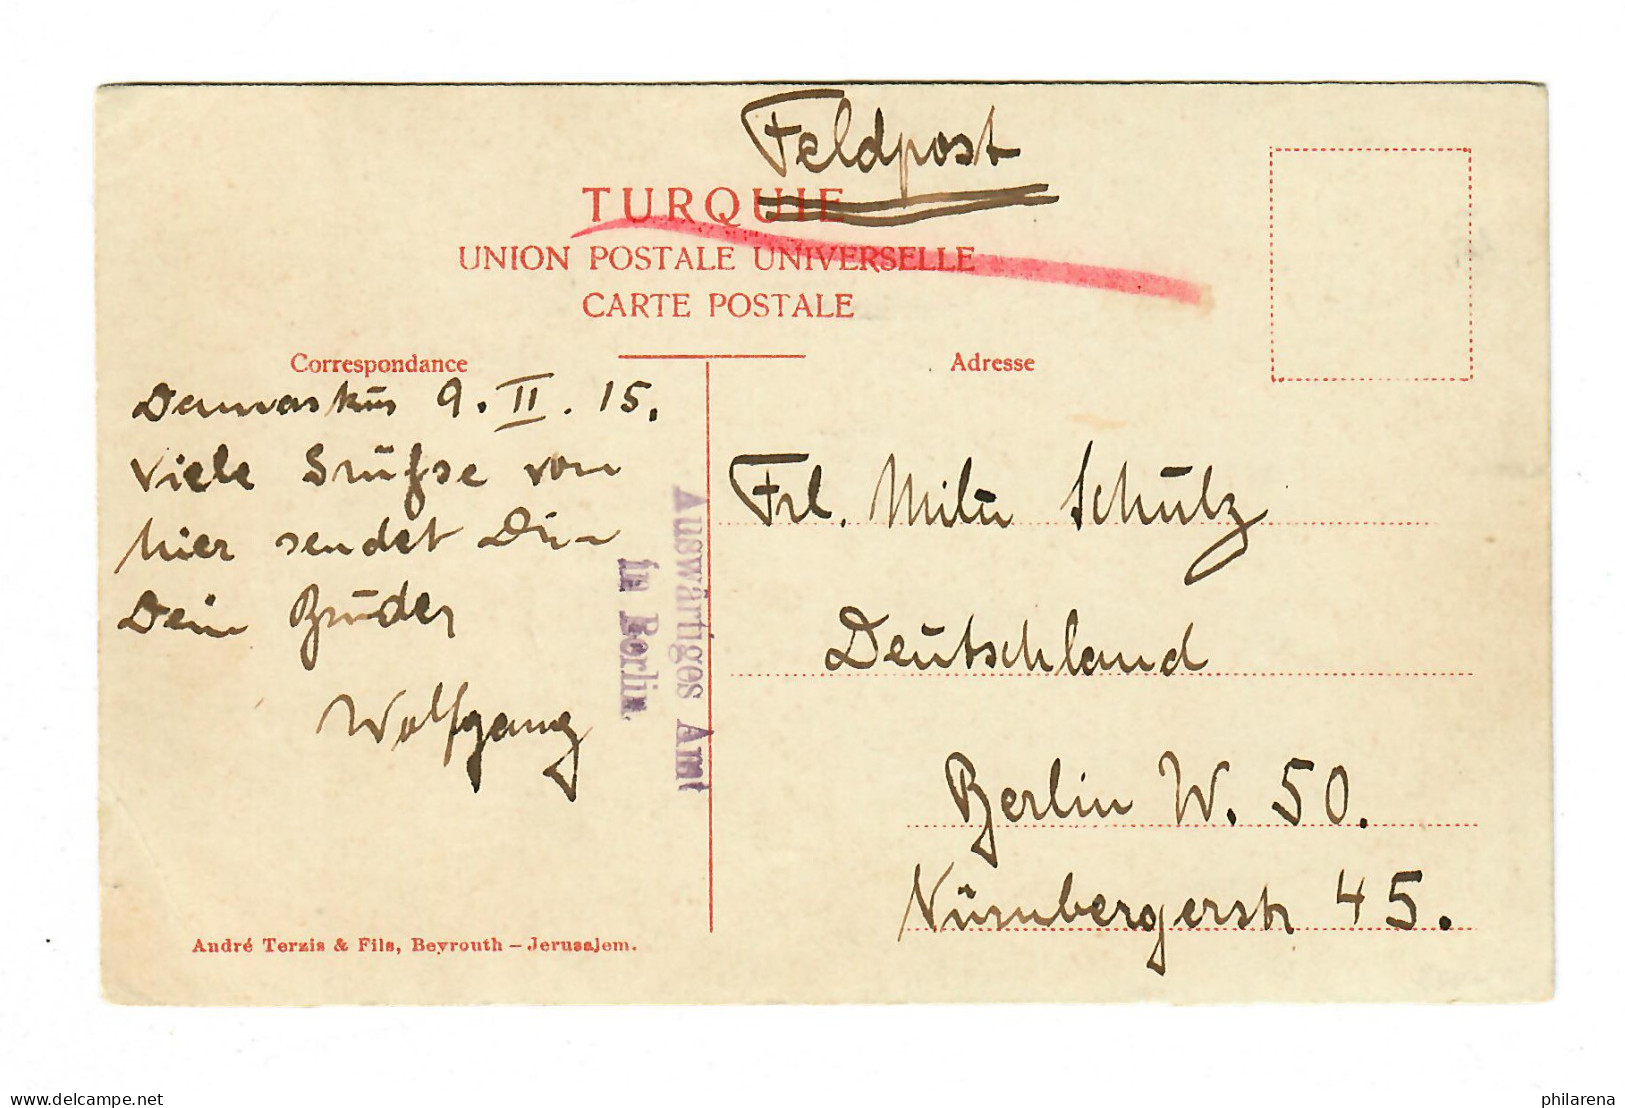 Feldpost
TURQUIE
UNION POSTALE UNIVERSELLE
CARTE POSTALE
Correspondance
Damaskus 9. II. 15.
Viele Grüße von
hier sendet Dir
Dein Bruder
Wolfgang
Auswärtiges Amt
in Berlin.
Adresse
Frl. Schulz
Deutschland
Berlin W. 50.
Nürnbergerstr 45.
André Terzis & Fils, Beyrouth – Jerusalem.
philarena